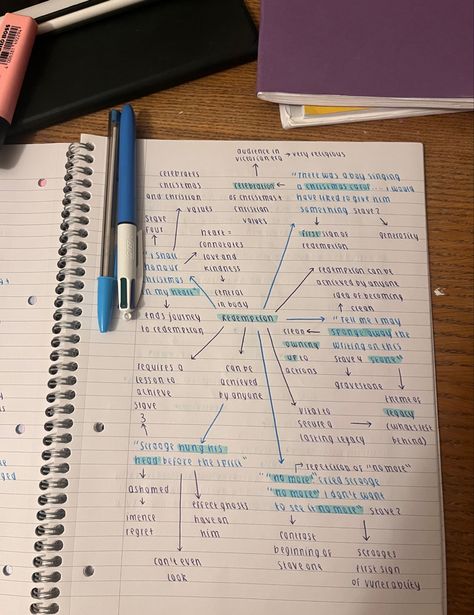 audience in
victorian era → very religious
celebrates
christmas
and christian
values
celebration
of christmas +
christian
values
"There was a boy singing
a christmas carol.... I would
have liked to give him
something stave 2
first sign of
redemption
generosity
stave
four
"I shall
honour
christmas
in my heart"
ends journey
to redemption
heart =
connotates
love and
kindness
central
in body
redemption
redemption can be
achieved by anyone
idea of becoming
clean
"Tell me I may
sponge away the
writing on this
stave 4 stone"
clean
owning
up to
actions
gravestone
themes of
legacy
(whats left
behind)
requires a
lesson to
achieve
stave
3
can be
achieved
by anyone
vital to
secure a
lasting legacy
"Scrooge hung his
head before the spirit"
ashamed
imence
regret
can't even
look
effect ghosts
have on
him
repetition of "no more"
"no more" cried scrooge
"no more" I don't want
to see it no more" stave 2
contrast
beginning of
stave one
scrooges
first sign
of vulnerability